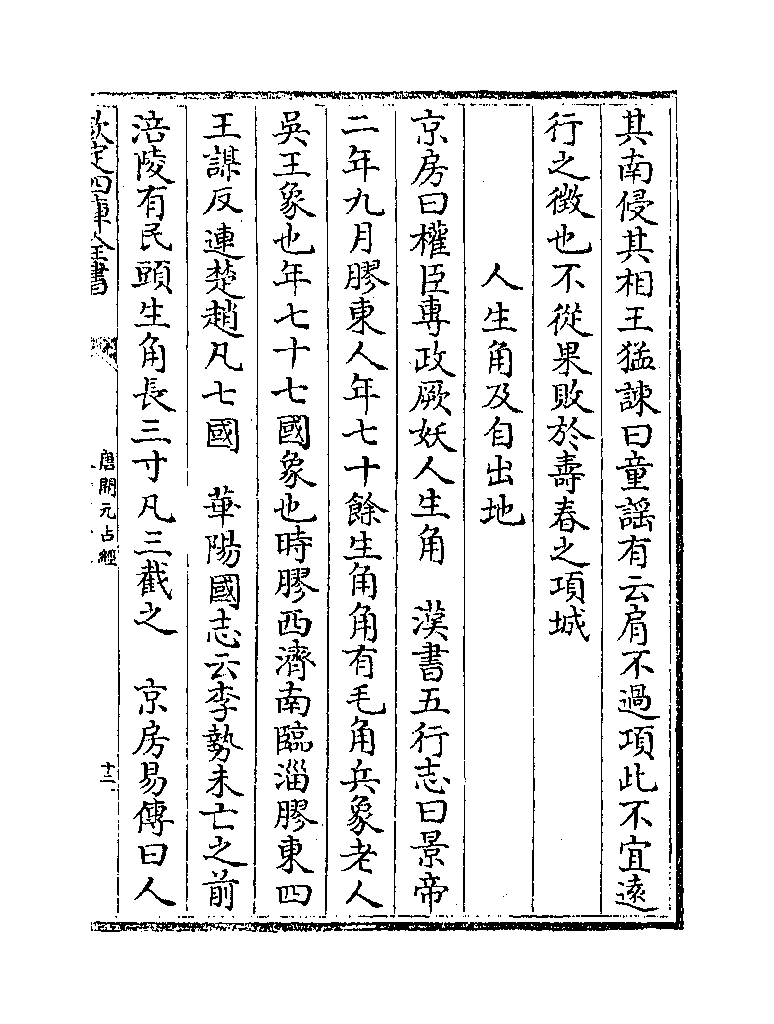 其南侵其相王猛諫曰童謡有云肩不過項此不宜遠
行之徴也不從果敗於壽春之項城
人生角及自出地
京房曰權臣專政厥妖人生角　漢書五行志曰景帝
二年九月膠東人年七十餘生角角有毛角兵象老人
吳王象也年七十七國象也時膠西濟南臨淄膠東四
王謀反連楚趙凡七國　華陽國志云李勢未亡之前
涪陵有民頭生角長三寸凡三截之　京房易傳曰人
欽定四庫全書
唐開元占經
十二